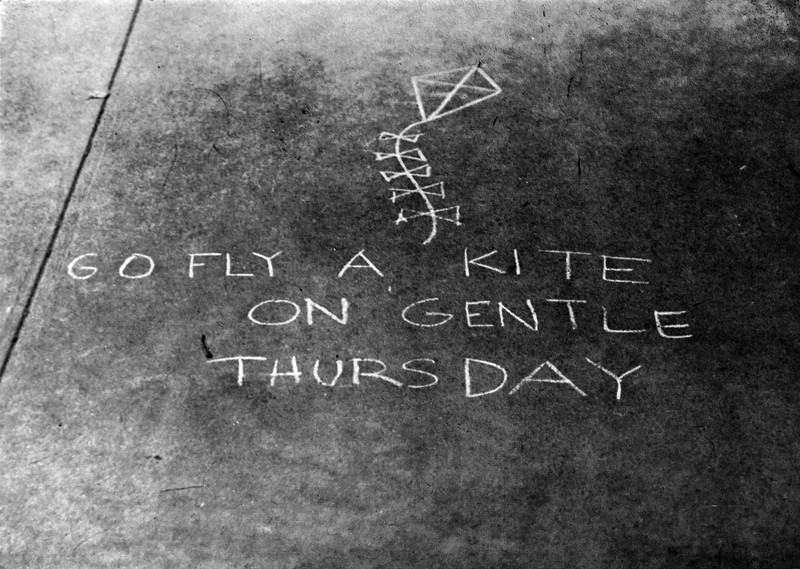 GO FLY A KITE
ON GENTLE
THURSDAY